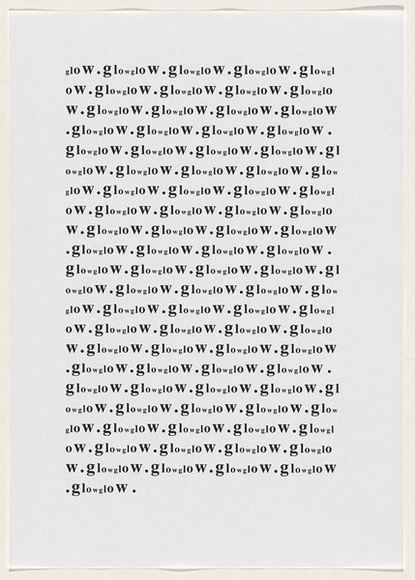 glow.glowglow.glowglow.glowglow.glowgl
ow.glowglow.glowglow.glowglow.glowglo
w.glowglow.glowglow.glowglow.glowglow
.glowglow.glowglow.glowglow.glowglow.
glowglow.glowglow.glowglow.glowglow.gl
owglow.glowglow.glowglow.glowglow.glow
glow.glowglow.glowglow.glowglow.glowgl
ow.glowglow.glowglow.glowglow.glowglo
w.glowglow.glowglow.glowglow.glowglow
.glowglow.glowglow.glowglow.glowglow.
glowglow.glowglow.glowglow.glowglow.gl
owglow.glowglow.glowglow.glowglow.glow
glow.glowglow.glowglow.glowglow.glowgl
ow.glowglow.glowglow.glowglow.glowglo
w.glowglow.glowglow.glowglow.glowglow
.glowglow.glowglow.glowglow.glowglow.
glowglow.glowglow.glowglow.glowglow.gl
owglow.glowglow.glowglow.glowglow.glow
glow.glowglow.glowglow.glowglow.glowgl
ow.glowglow.glowglow.glowglow.glowglo
w.glowglow.glowglow.glowglow.glowglow
.glowglow.